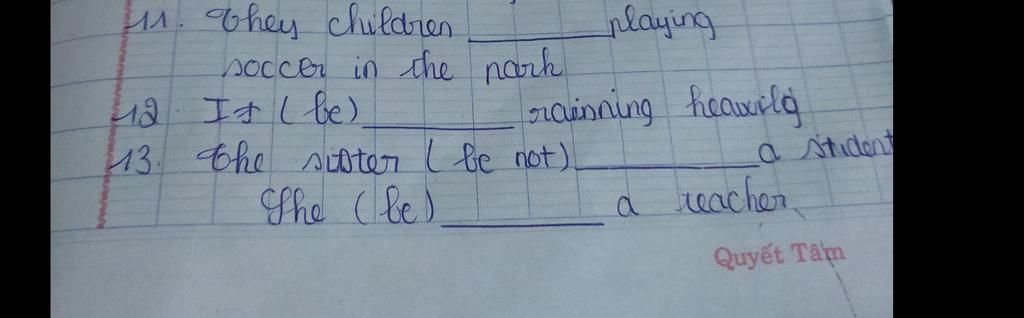 11. They children ______ playing
soccer in the park
12. It (be) ______ rainning heavily
13. The sister (be not) ______ a student
She (be) ______ a teacher.
Quyết Tâm